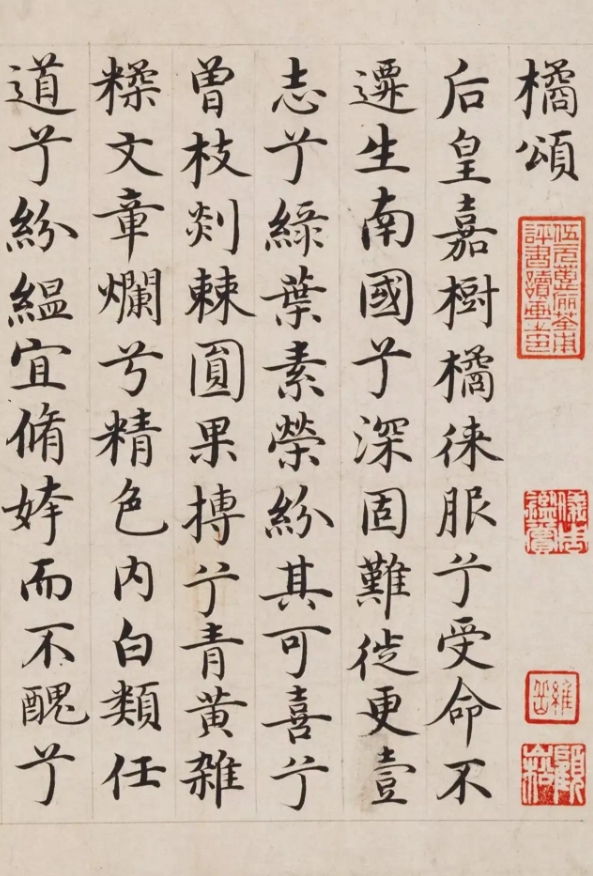 橘頌
后皇嘉樹橘徠服兮受命不
遷生南國兮深固難徙更壹
志兮緑葉素榮紛其可喜兮
曾枝剡棘圓果摶兮青黄雜
糅文章爛兮精色内白類任
道兮紛緼宜脩姱而不醜兮
儀周鑑賞